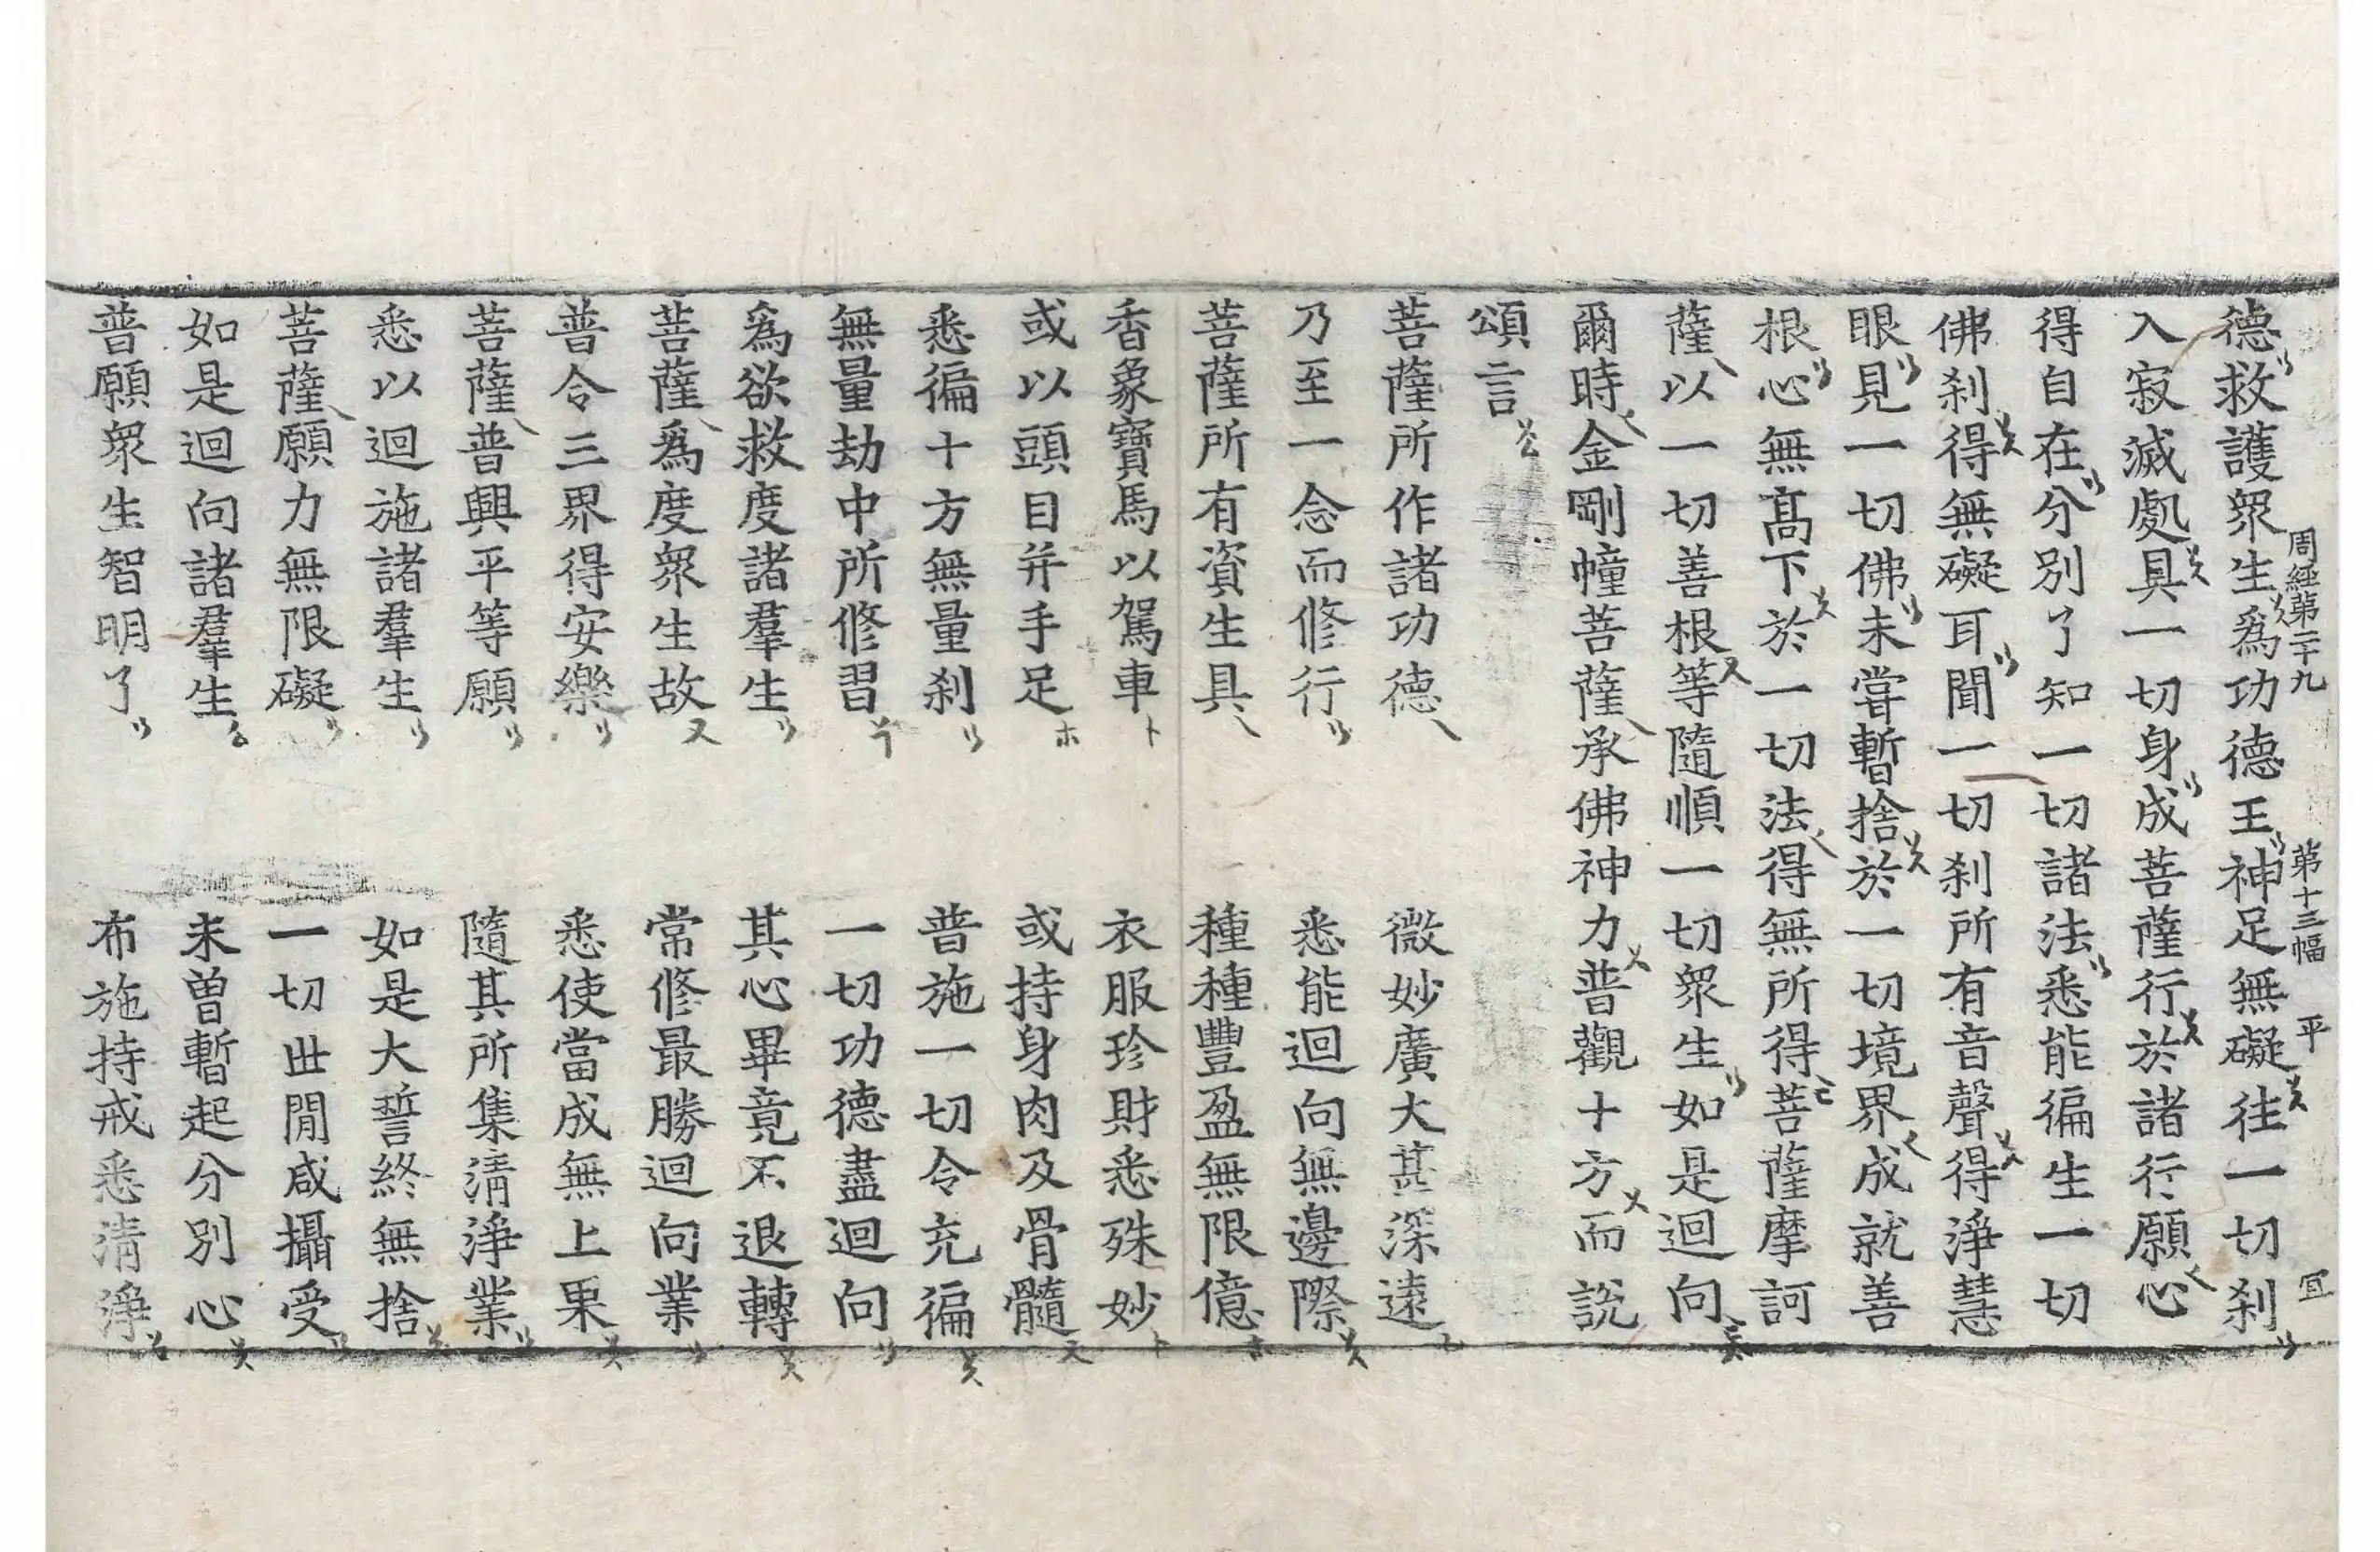 周經第二十九　第十三幅　平　冝
德救護衆生爲功德王神足無礙往一切刹
入寂滅處具一切身成菩薩行於諸行願心
得自在分別了知一切諸法悉能徧生一切
佛刹得無礙耳聞一切刹所有音聲得淨慧
眼見一切佛未甞暫捨於一切境界成就善
根心無髙下於一切法得無所得菩薩摩訶
薩以一切善根等隨順一切衆生如是迴向
爾時金剛幢菩薩承佛神力普觀十方而說
頌言
菩薩所作諸功德　微妙廣大甚深遠
乃至一念而修行　悉能迴向無邊際
菩薩所有資生具　種種豐盈無限億
香象寶馬以駕車　衣服珍財悉殊妙
或以頭目并手足　或持身肉及骨髓
悉徧十方無量刹　普施一切令充徧
無量劫中所修習　一切功德盡迴向
爲欲救度諸羣生　其心畢竟不退轉
菩薩爲度衆生故　常修最勝迴向業
普令三界得安樂　悉使當成無上果
菩薩普興平等願　隨其所集淸淨業
悉以迴施諸羣生　如是大誓終無捨
菩薩願力無限礙　一切世閒咸攝受
如是迴向諸羣生　未曾暫起分別心
普願衆生智明了　布施持戒悉淸淨